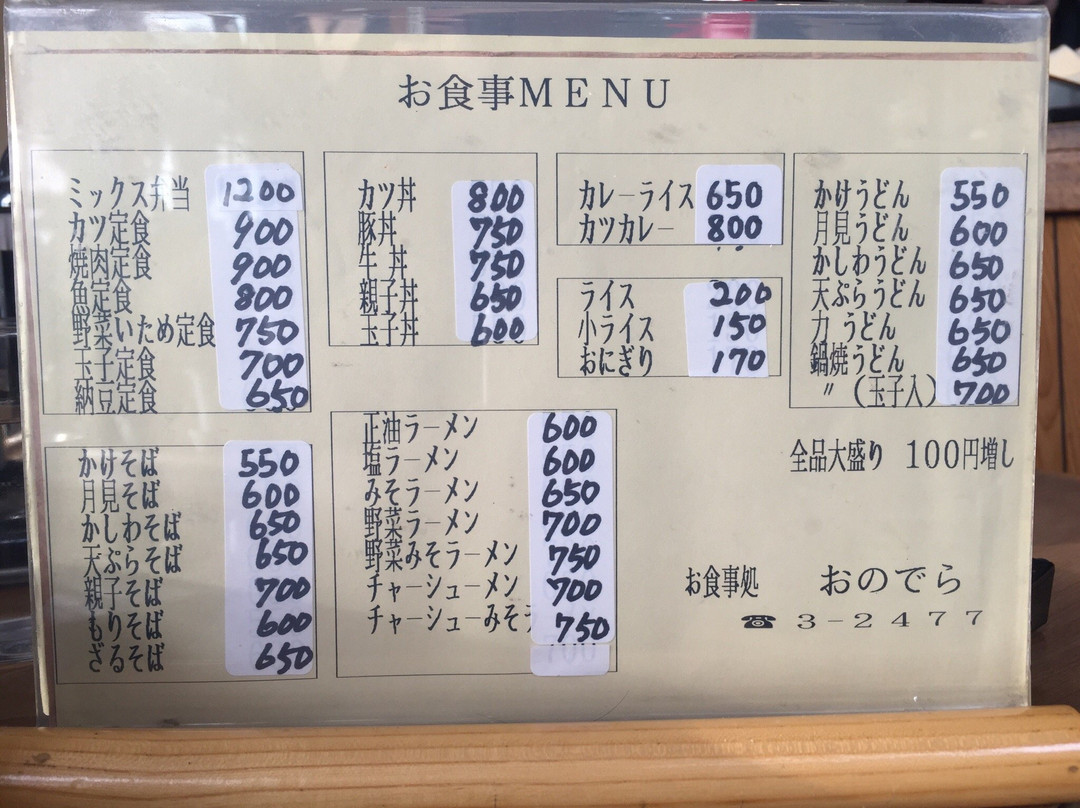 お食事MENU
ミックス弁当 1200
カツ定食 900
焼肉定食 900
魚定食 800
野菜いため定食 750
玉子定食 700
納豆定食 650
カツ丼 800
豚丼 750
牛丼 750
親子丼 650
玉子丼 600
カレーライス 650
カツカレー 800
ライス 200
小ライス 150
おにぎり 170
かけうどん 550
月見うどん 600
かしわうどん 650
天ぷらうどん 650
力うどん 650
鍋焼うどん 650
〃（玉子入） 700
かけそば 550
月見そば 600
かしわそば 650
天ぷらそば 650
親子そば 700
もりそば 600
ざるそば 650
正油ラーメン 600
塩ラーメン 600
みそラーメン 650
野菜ラーメン 700
野菜みそラーメン 750
チャーシューメン 700
チャーシューみそラ 750
全品大盛り 100円増し
お食事処 おのでら
☎ 3-2477